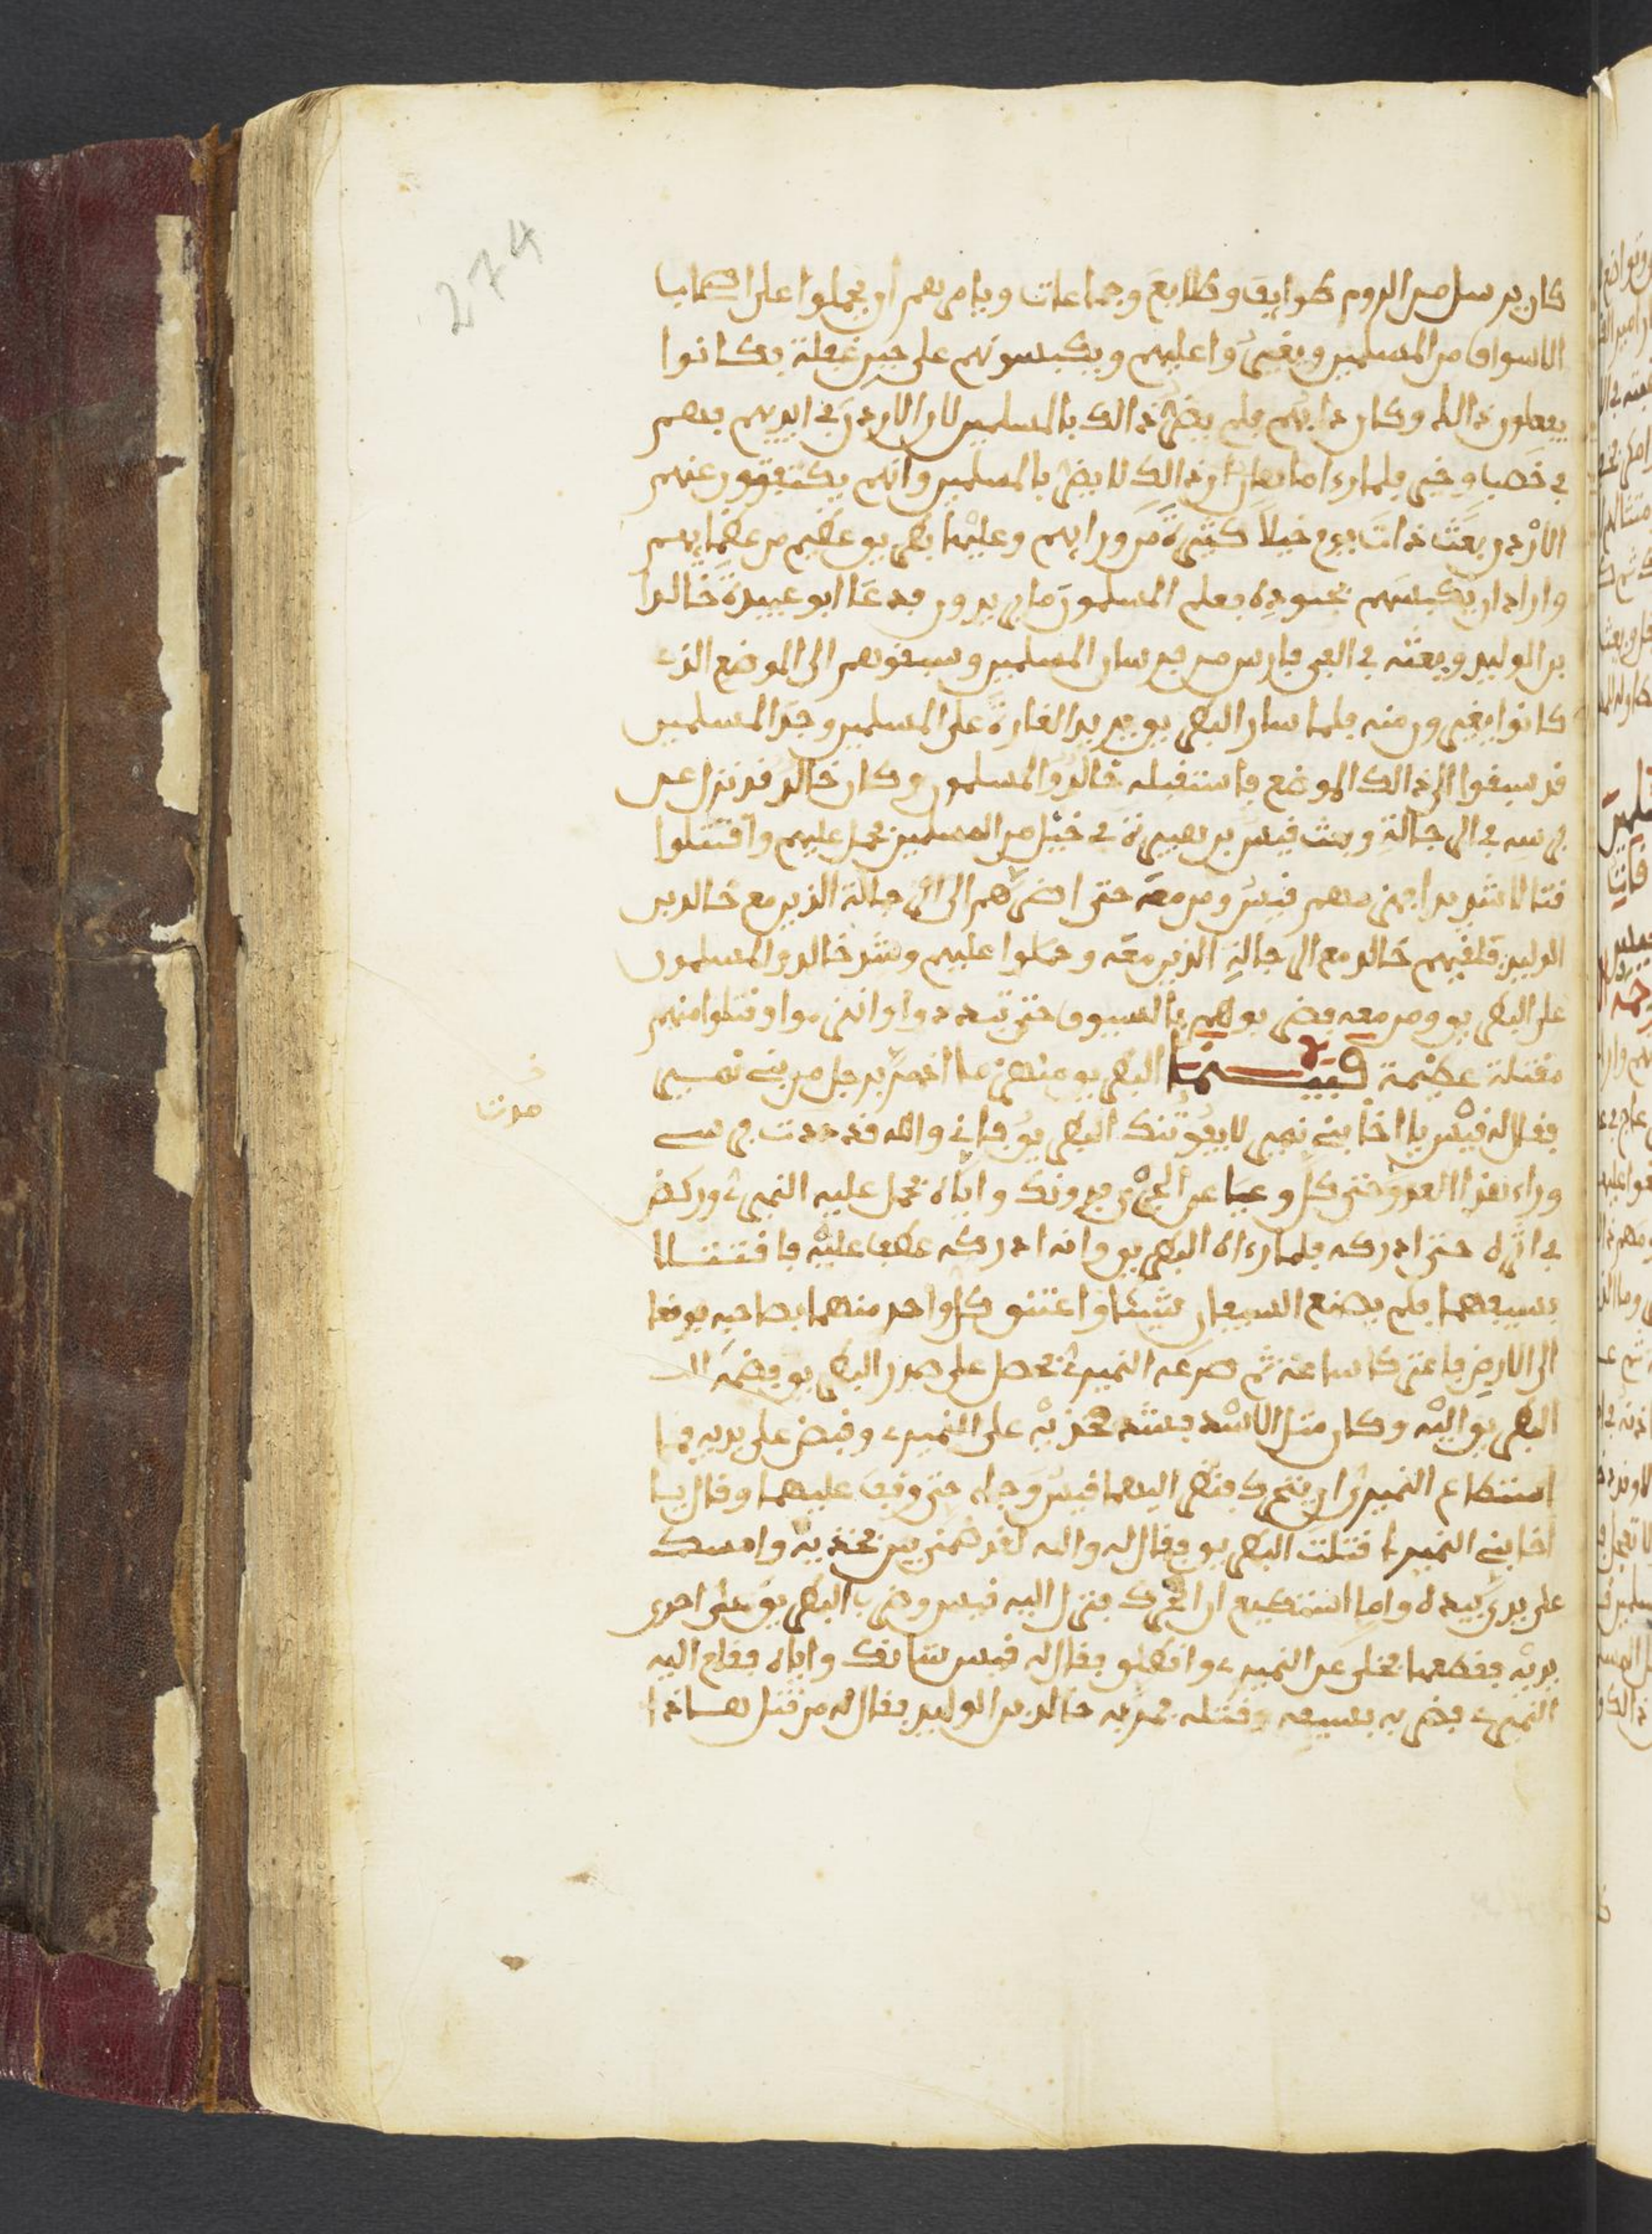 274
كان يرسل من الروم طوايف وطلايع وجماعات ويامرهم ان يحملوا على اصحاب
الاسواق من المسلمين ويغيروا عليهم ويكبسونهم على حين غفلة فكانوا
يفعلون ذالك وكان دابهم فلم يضر ذالك بالمسلمين لان الاردن في ايديهم فهم
في خصب وخير فلما راى ماهان ان ذالك لا يضر بالمسلمين وانهم يكتفون عنهم
الاردن بعث ذات يوم خيلا كثيرة من ورايهم وعليها بطريق عظيم من عظمايهم
واراد ان يكبسهم بجنوده فعلم المسلمون ما يريدون فدعا ابو عبيدة خالدا
بن الوليد وبعثه في الفي فارس من فرسان المسلمين وسبقوهم الى الموضع الذي
كانوا يغيرون منه فلما سار البطريق يريد الغارة على المسلمين وجد المسلمين
قد سبقوا الى ذالك الموضع فاستقبله خالد والمسلمون وكان خالد قد نزل عن
فرسه في الرجالة وبعث قيس بن هبيرة في خيل من المسلمين فحمل عليهم واقتتلوا
قتالا شديدا فهزمهم قيس ومن معه حتى اضطرهم الى الرجالة الذين مع خالد بن
الوليد فلقيهم خالد مع الرجالة الذين معه وحملوا عليهم وشد خالد والمسلمون
على البطريق ومن معه فضربوهم بالسيوف حتى تبددوا وانهزموا وقتلوا منهم
مقتلة عظيمة فبينما البطريق منهزما اذ مر برجل من بني نمير
فقال له قيس يا اخا بني نمير لا يفوتنك البطريق فاني والله قد كددت فرسي
وراء هذا العدو حتى كل وعيا عن الجري فدونك واياه فحمل عليه النميري وركض
في اثره حتى ادركه فلما راه البطريق وانه ادركه عطف عليه فاقتتلا
بسيفهما فلم يصنع السيفان شيئا واعتنق كل واحد منهما بصاحبه فوقعا
الى الارض فاعتركا ساعة ثم صرعه النميري فحصل على صدر البطريق فضمه
البطريق اليه وكان مثل الاسد فشد فخذيه على النميري وقبض على يديه فما
استطاع النميري ان يتحرك فنظر اليهما قيس وجاء حتى وقف عليهما وقال يا
اخا بني النمير قتلت البطريق فقال له والله لقد ضمني بين فخذيه وامسك
على يدي بيده وما استطيع ان اتحرك فنزل اليه قيس وضرب البطريق على احدى
يديه فقطعها فخلى عن النميري وانطلق فقال له قيس شانك واياه فقام اليه
النميري فضربه بسيفه وقتله فمر به خالد بن الوليد فقال له من قتل هاذا